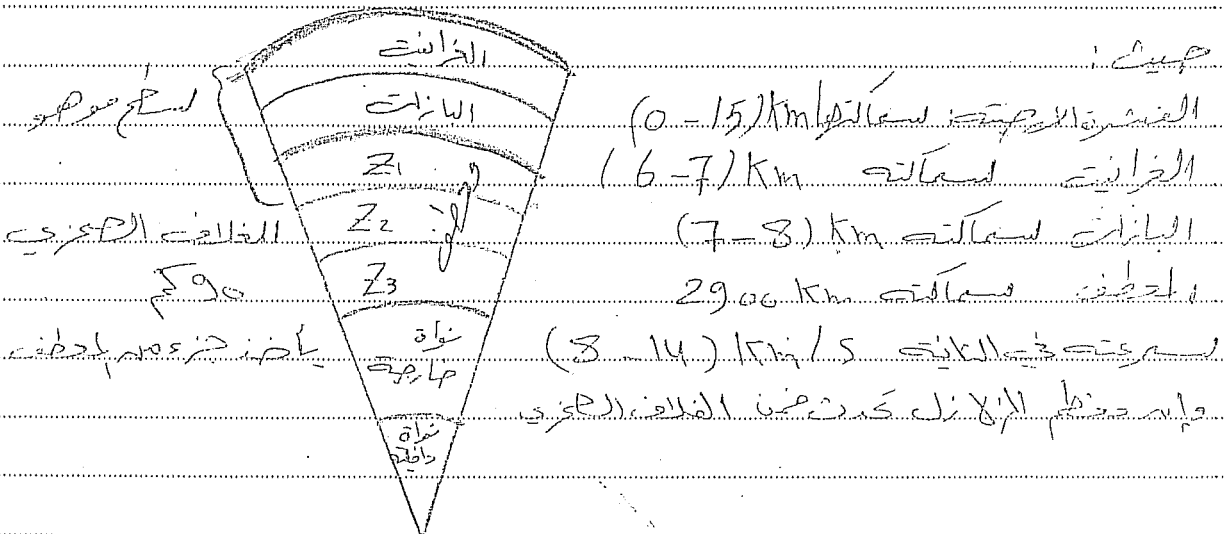 حيث:
القشرة الأرضية: سماكتها (0-15) km
الغرانيت سماكته (6-7) Km
البازلت سماكته (7-8) km
المعطف سماكته 2900 Km
سرعته في الثانية (8-14) Km/s
وإن معظم الزلازل تحدث ضمن الغلاف الصخري
الغرانيت
البازلت
Z1
Z2
Z3
المعطف
نواة
خارجية
نواة
داخلية
سطح موهو
الغلاف الصخري
90 كم
يأخذ جزء من المعطف